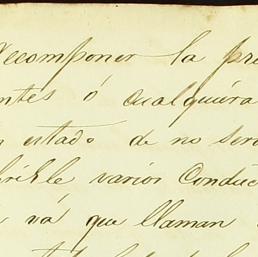 recomponer la pre
ntes ó cualquiera
estado de no ser
varios Conduc
va que llaman